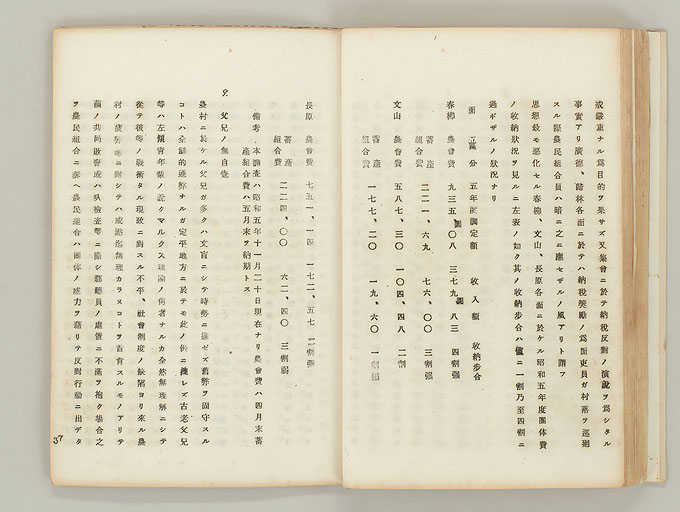 或嚴重ナル為目的ヲ果サズ又集會ニ於テ納稅反對ノ演說ヲ為シタル
事實アリ廣德、歸林各面ニ於テハ納稅獎勵ノ為面吏員ガ村落ヲ巡廻
スル際農民組合員ハ暗ニ之ニ應セザルノ風アリト謂フ
思想最モ惡化セル春柳、文山、長原各面ニ於ケル昭和五年度團体費
ノ收納狀況ヲ見ルニ左表ノ如ク其ノ收納步合ハ僅ニ一割乃至四割ニ
過ギザルノ狀況ナリ
面 區分 五年度調定額 收入額 收納步合
春柳 農會費 九三五圓〇八 三七九圓八三 四割强
畜産組合費 二二一、六九 七六、〇〇 三割强
文山 農會費 五八七、三〇 一〇四、四八 二割
畜産組合費 一七七、二〇 一九、六〇 一割强
長原 農會費 七五一、一四 一七二、五七 二割强
畜産組合費 二二四、〇〇 六二、四〇 三割弱
備考 本調査ハ昭和五年十一月二十日現在ナリ農會費ハ四月末畜
産組合費ハ五月末ヲ納期トス
9. 父兄ノ無自覺
農村ニ於ケル父兄ガ多クハ文盲ニシテ時勢ニ通ゼズ舊弊ヲ固守スル
コトハ全鮮的通弊ナルガ定平地方ニ於テモ此ノ例ニ洩レズ古老父兄
等ハ左傾青年輩ノ說クマルクス理論ノ何者ナルカ全然無理解ニシテ
從テ彼等ノ戰術タル現政ニ對スル不平、社會制度ノ缺陷ヨリ來ル農
村ノ疲弊等ニ對シテハ或點迄無理カラヌコトヲ首肯スルモノアリテ
繭ノ共同販賣或ハ叺檢査等ニ際シ郡職員ノ處置ニ不滿ヲ抱ク場合之
ヲ農民組合ニ訴ヘ農民組合ハ團体ノ威力ヲ藉リテ反對行動ニ出デタ
37